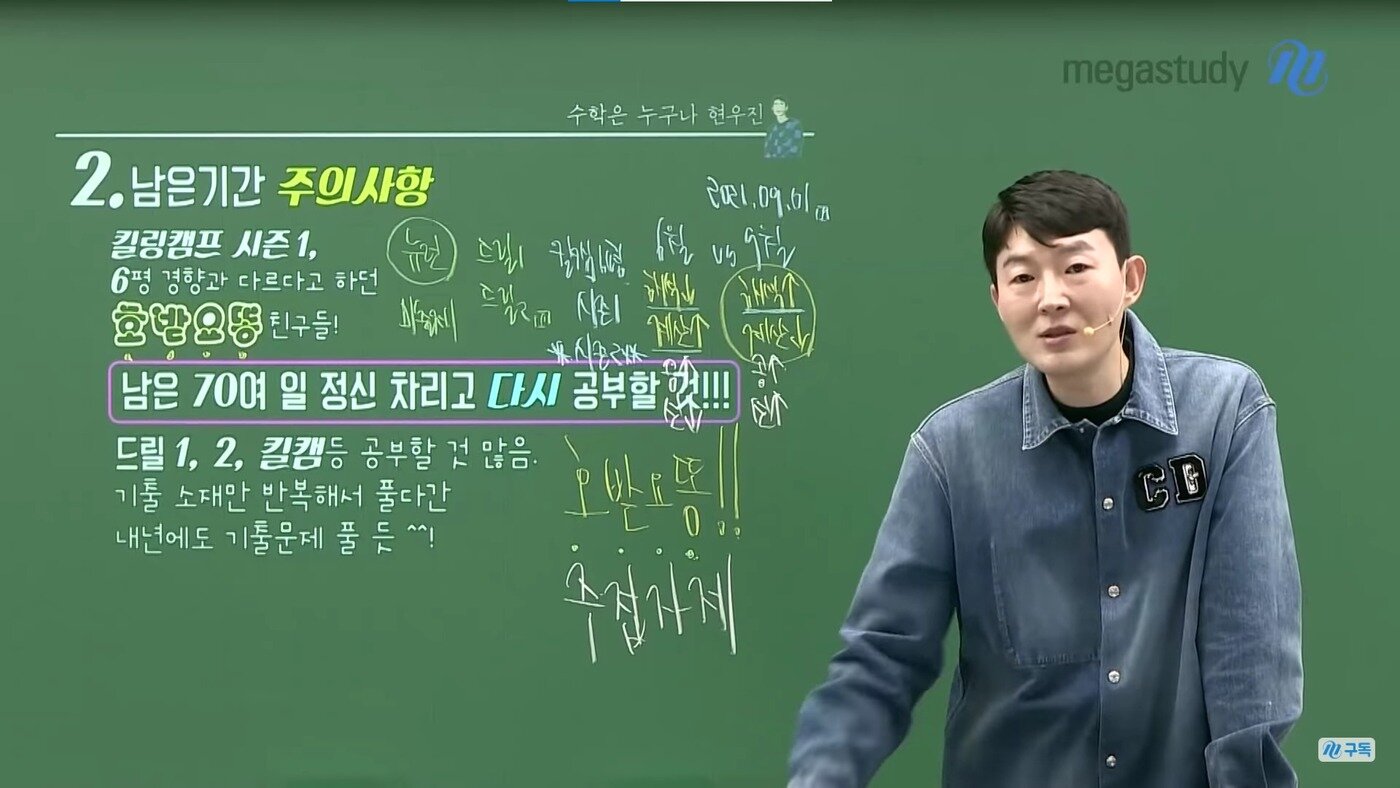 megastudy
수학은 누구나 현우진
2. 남은기간 주의사항
2021.09.01
킬링캠프 시즌 1,
6평 경향과 다르다고 하던
호발요뚱 친구들!
뉴런 드릴1 6월 vs 9월
드릴2 시즌1 해석↓ 해석↑
계산↑ 계산↓
*시즌2*
공↑ 공↑
남은 70여 일 정신 차리고 다시 공부할 것!!!
드릴 1, 2, 킬캠등 공부할 것 많음.
기출 소재만 반복해서 풀다간
내년에도 기출문제 풀 듯 ^^!
호발요뚱!!
주접자제
구독